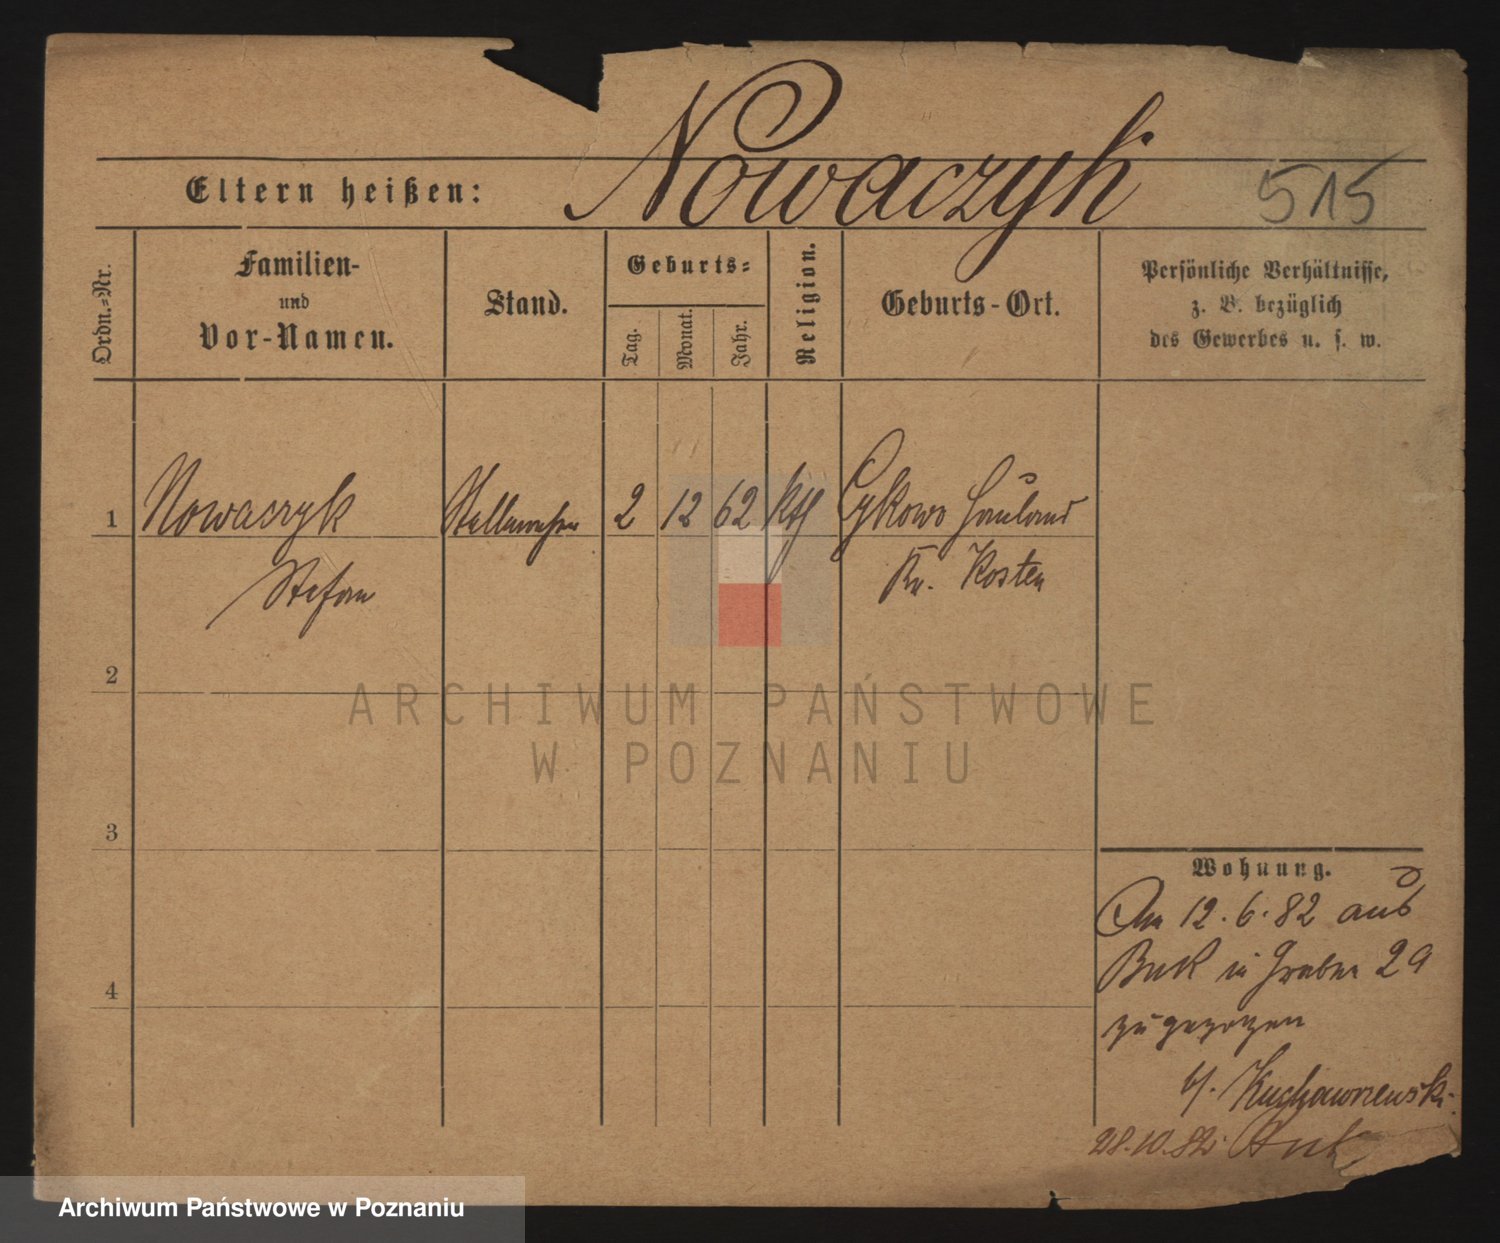 Nowaczyk
Eltern heißen:
515
Ordn.-Nr.
Familien-
und
Vor-Namen.
Stand.
Geburts-
Tag.
Monat.
Jahr.
Religion.
Geburts-Ort.
Persönliche Verhältnisse,
z. B. bezüglich
des Gewerbes u. s. w.
1 Nowaczyk 2 12 62 kth Cykowo Hauland
Stefan Kr. Kosten
2
3
4
Wohnung.
Am 12.6.82 aus
Buk in Graben 29
zugezogen
b/.
28.10.82 Buk
ARCHIWUM PAŃSTWOWE
W POZNANIU
Archiwum Państwowe w Poznaniu